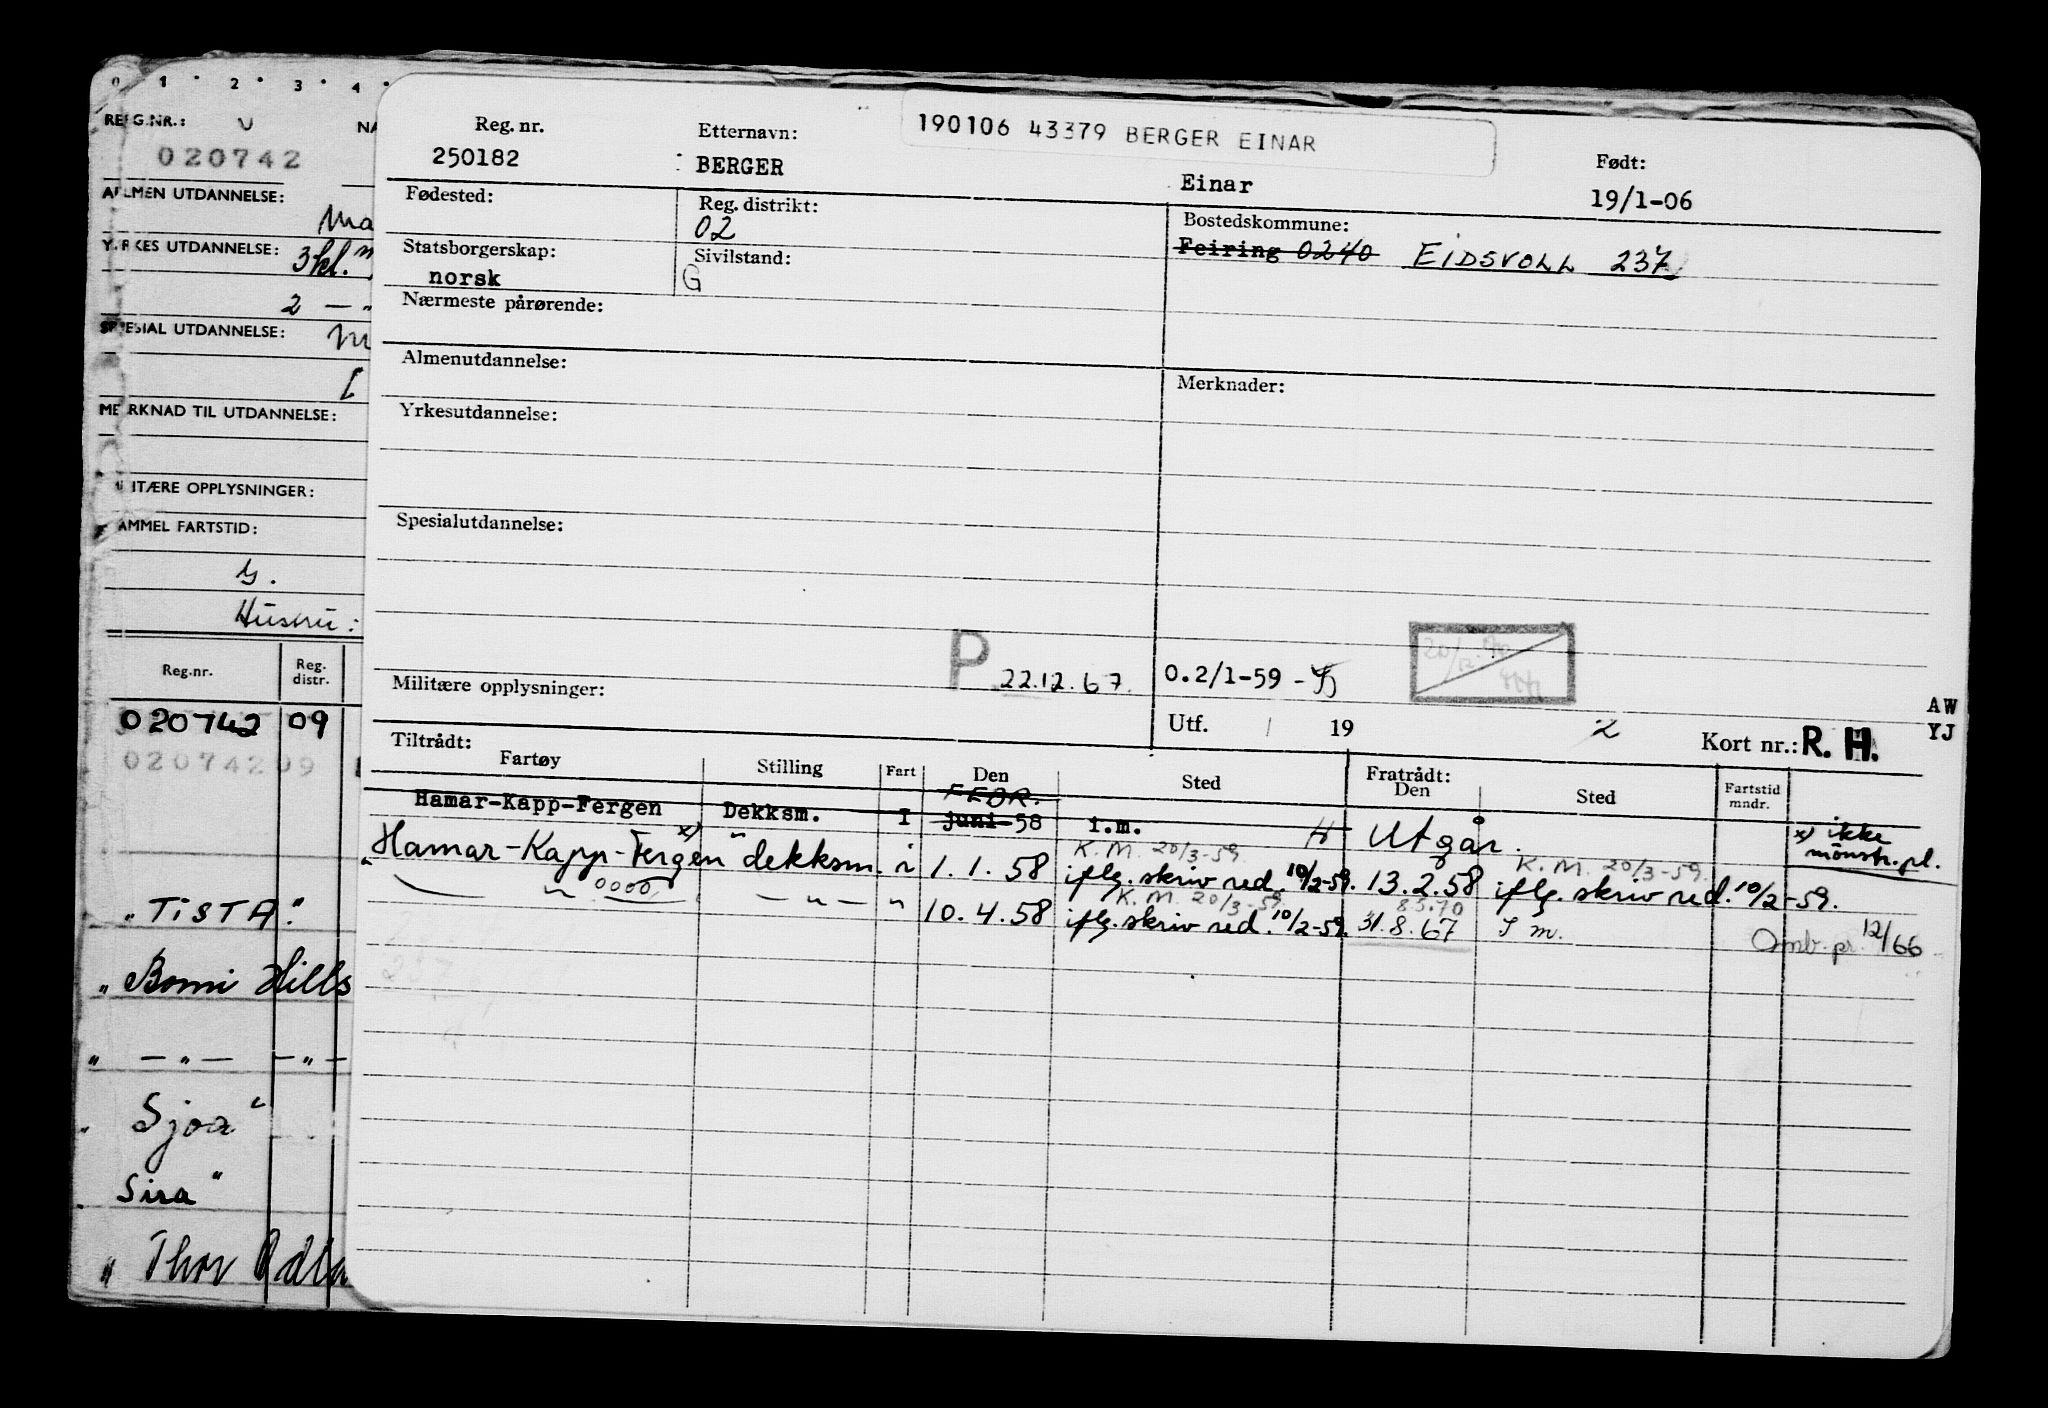 0 1 2 3 4
REG.NR.:
020742
ALLMEN UTDANNELSE:
YRKES UTDANNELSE: 3 kl.
2 — „
SPESIAL UTDANNELSE:
MERKNAD TIL UTDANNELSE:
MILITÆRE OPPLYSNINGER:
GAMMEL FARTSTID:
G.
Hustru:
Reg.nr. Reg. distr.
020742 09
020742 09
„TISTA"
„Bomi Hills
„ — „ — — „ —
„Sjoa"
„Sira"
„Thor Odla
190106 43379 BERGER EINAR
Reg. nr. Etternavn: Født:
250182 BERGER Einar 19/1-06
Fødested: Reg. distrikt: Bostedskommune:
02 Feiring 0240 EIDSVOLL 237
Statsborgerskap: Sivilstand:
norsk G
Nærmeste pårørende:
Almenutdannelse: Merknader:
Yrkesutdannelse:
Spesialutdannelse:
P 22.12.67. 0.2/1-59
Militære opplysninger:
Utf. / 19 2 Kort nr.: R. H.
AW
YJ
Tiltrådt: Fratrådt:
Fartøy Stilling Fart Den Sted Den Sted Fartstid mndr.
FEBR.
Hamar-Kapp-Fergen Dekksm. I juni-58 i.m. H Utgår. x) ikke mönstr.pl.
K.M. 20/3-59. K.M. 20/3-59.
„Hamar-Kapp-Fergen x) " dekksm. i 1.1.58 iflg. skriv red. 10/2-59. 13.2.58 iflg. skriv red. 10/2-59.
0000 K.M. 20/3-59. 83.70
— „ — — „ — „ 10.4.58 iflg. skriv red. 10/2-59. 31.8.67 I m. Omb. pr. 12/66